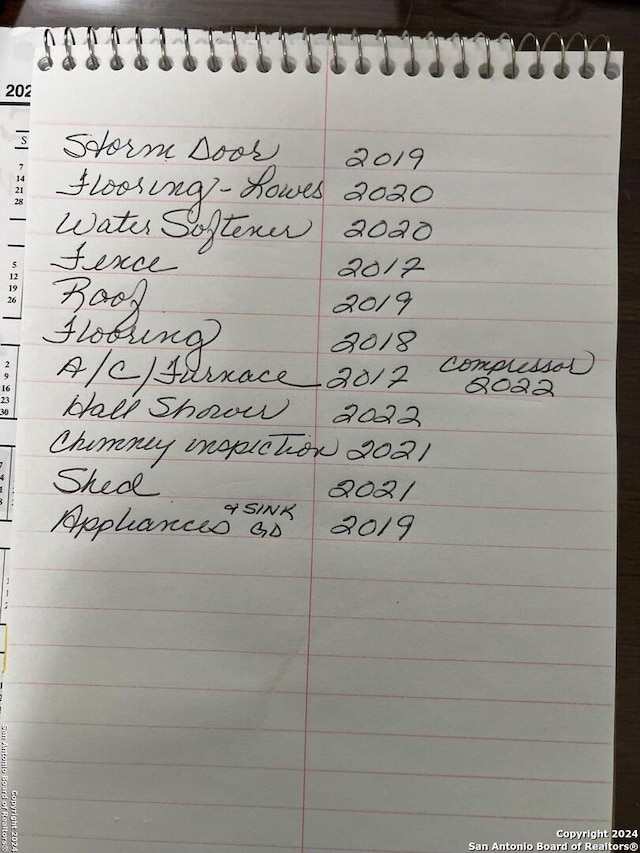 202
S
7
14
21
28
5
12
19
26
2
9
16
23
30
Storm Door 2019
Flooring - Lowes 2020
Water Softener 2020
Fence 2017
Roof 2019
Flooring 2018
A/C/Furnace 2017 compressor 2022
Hall Shower 2022
Chimney inspection 2021
Shed 2021
Appliances + SINK GD 2019
Copyright 2024
San Antonio Board of Realtors®
Copyright 2024
San Antonio Board of Realtors®